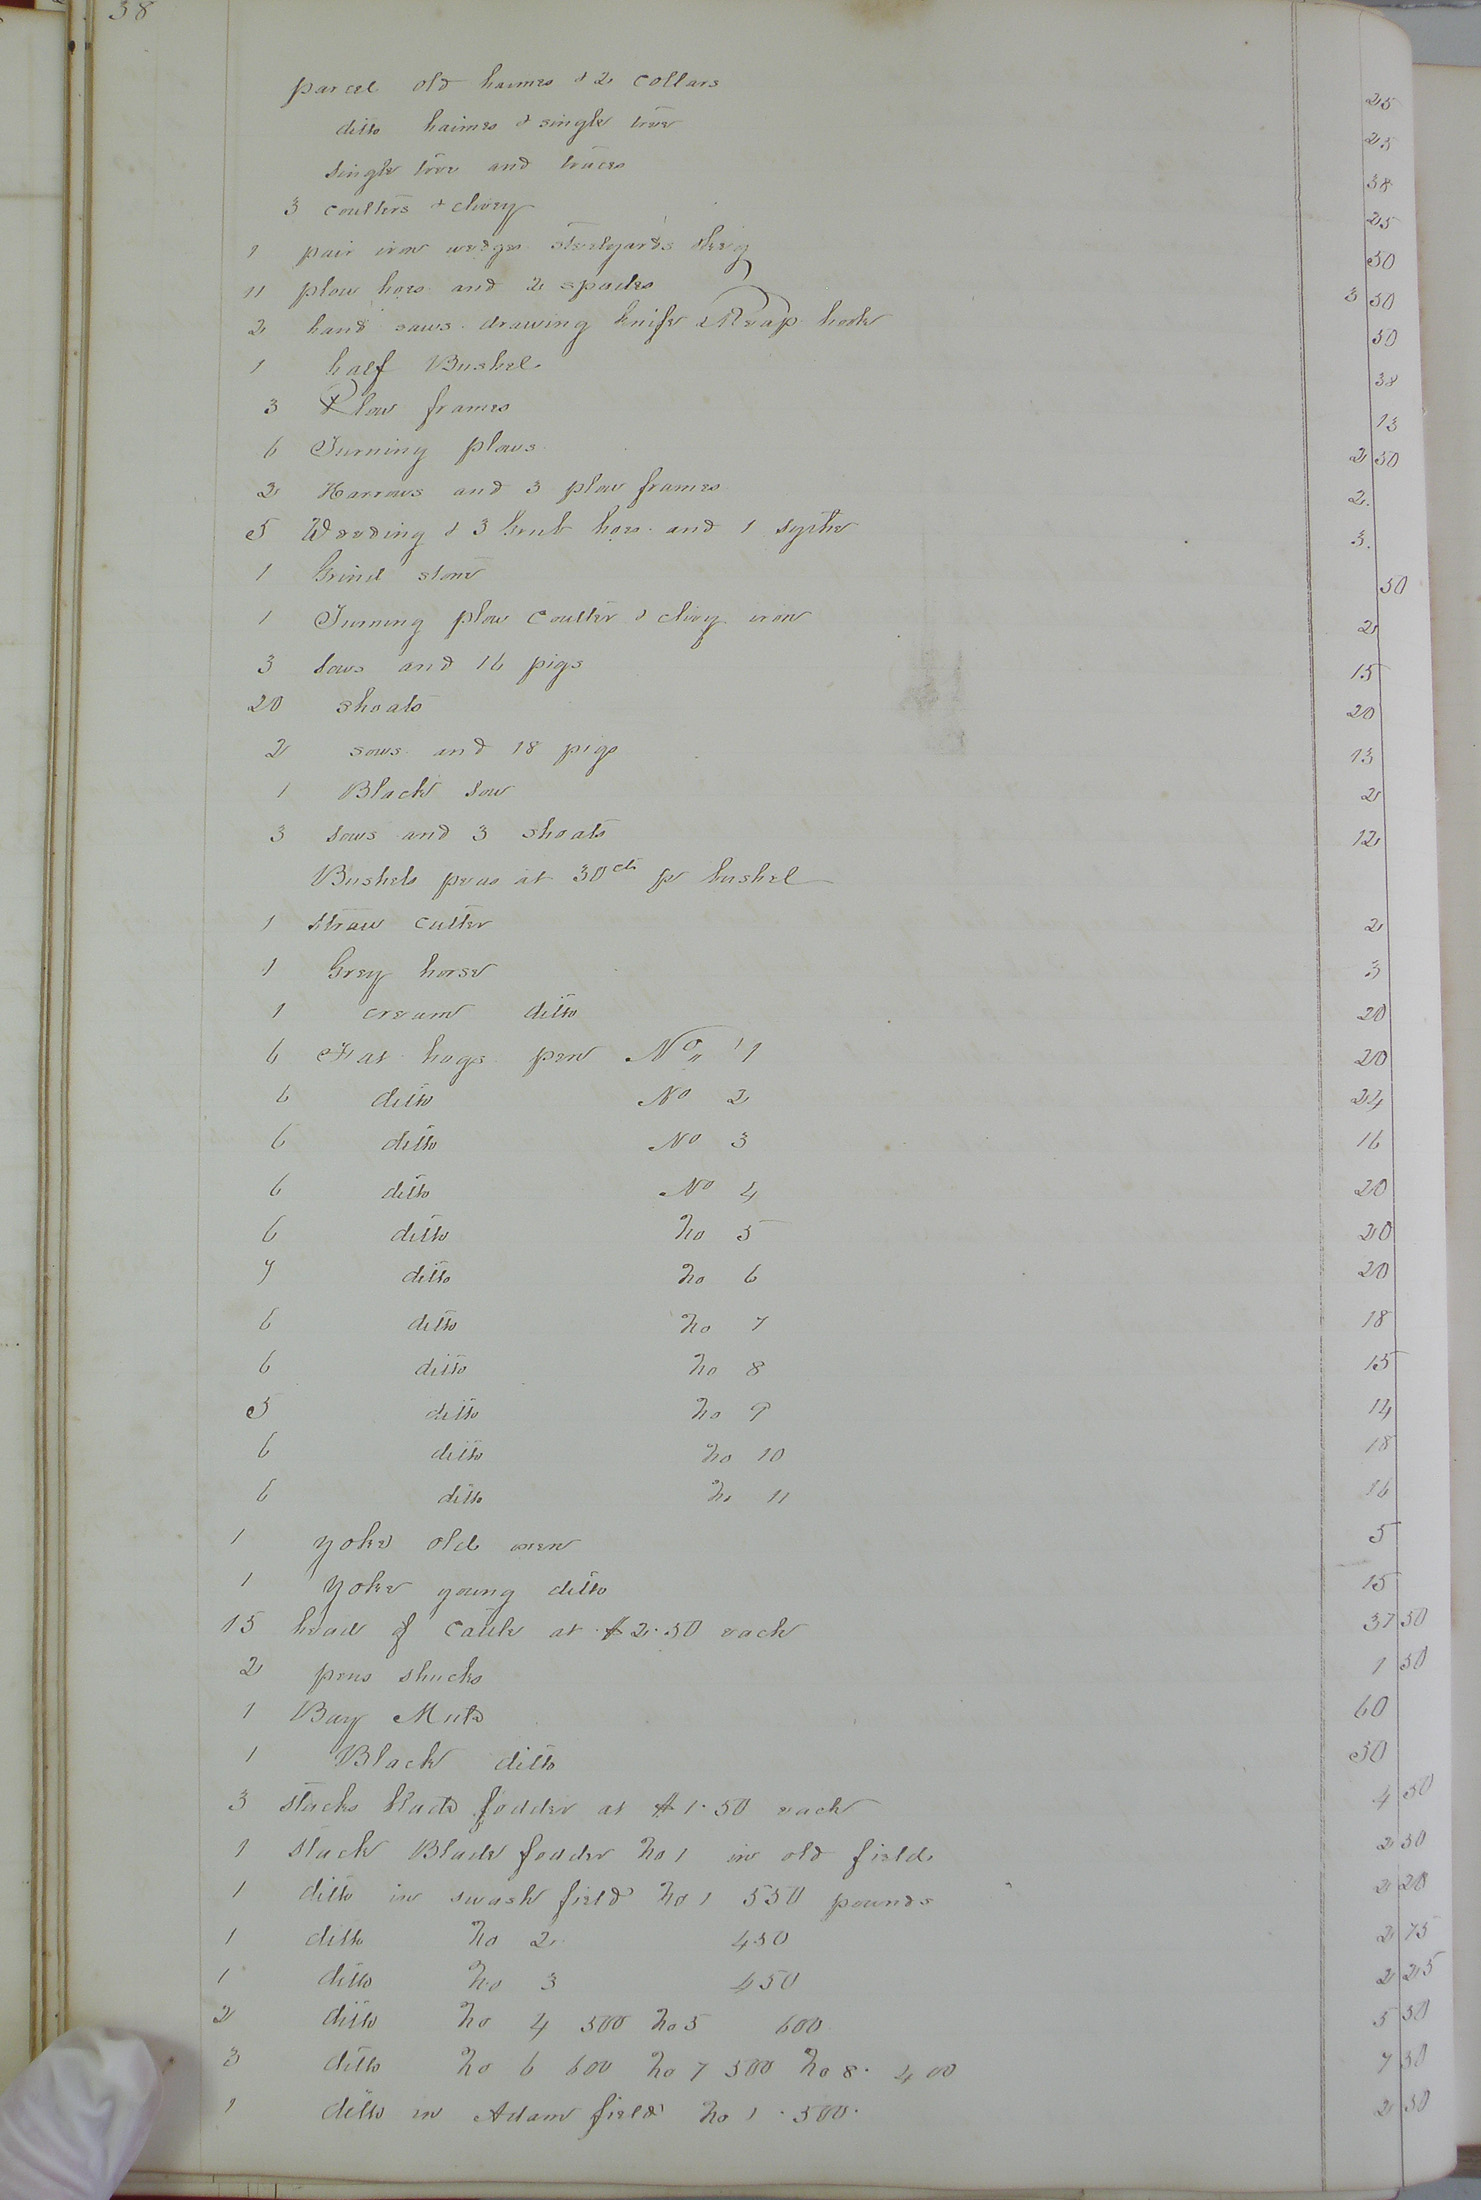 38
parcel old haimes & 2 collars 25
ditto haimes & single tree 25
single tree and traces 38
3 coulters & clivey 25
1 pair iron wedges steelyards 50
11 plow hoes and 2 spades 3 50
2 hand saws drawing knife & Reap hook 50
1 half Bushel 38
3 Plow frames 13
6 Turning plows 2 50
2 Harrows and 3 plow frames 2
5 Weeding & 3 Grub hoes and 1 sythe 3
1 Grind stone 50
1 Turning plow coulter & clivey iron 2
3 Sows and 16 pigs 15
20 shoats 20
2 sows and 18 pigs 13
1 Black sow 2
3 sows and 3 shoats 12
Bushels peas at 30cts pr bushel
1 Straw cutter 2
1 Grey horse 3
1 cream ditto 20
6 Fat hogs pen No 1 20
6 ditto No 2 24
6 ditto No 3 16
6 ditto No 4 20
6 ditto no 5 20
7 ditto no 6 20
6 ditto no 7 18
6 ditto no 8 15
5 ditto no 9 14
6 ditto no 10 18
6 ditto no 11 16
1 yoke old oxen 5
1 yoke young ditto 15
15 head of cattle at $2.50 each 37 50
2 pens shucks 1 50
1 Bay Mule 60
1 Black ditto 50
3 stacks blade fodder at $1.50 each 4 50
1 stack Blade fodder no 1 in old field 2 50
1 ditto in swash field no 1 550 pounds 2 20
1 ditto no 2 450 2 75
1 ditto no 3 450 2 25
2 ditto no 4 500 no 5 600 5 50
3 ditto no 6 600 no 7 500 no 8. 400 7 50
1 ditto in Adam field no 1. 500. 2 50